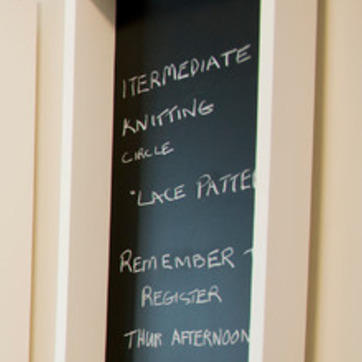 ITERMEDIATE
KNITTING
CIRCLE
"LACE PATTE
REMEMBER T
REGISTER
THUR AFTERNOON